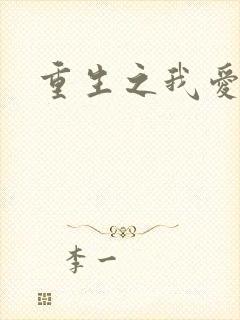 重生之我愛
李一